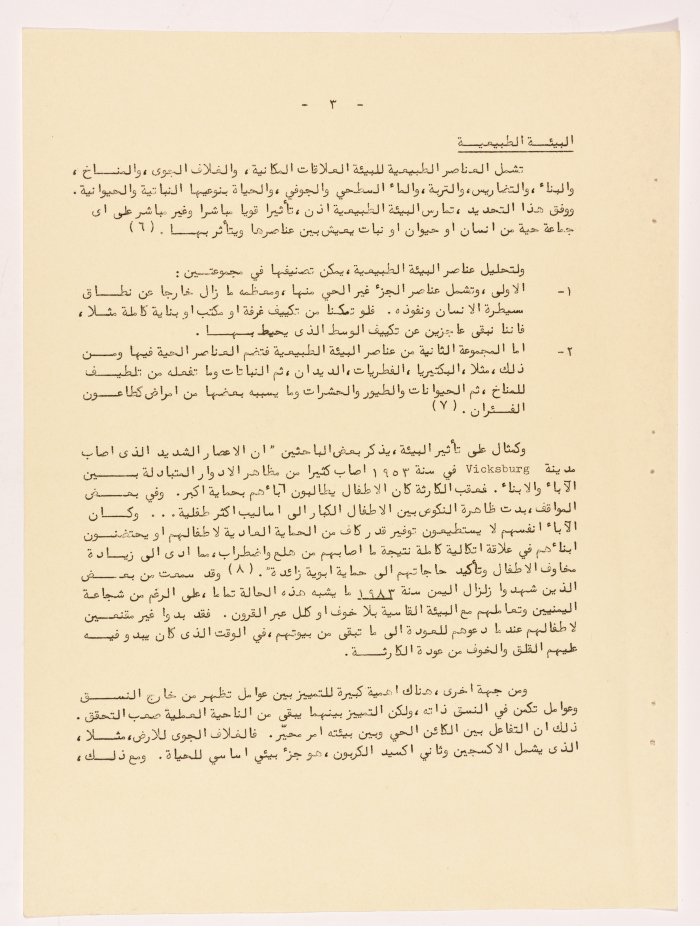 - ٣ -
البيئة الطبيعية
تشمل العناصر الطبيعية للبيئة العلاقات المكانية، والغلاف الجوى، والمناخ،
والبناء، والتضاريس، والتربة، والماء السطحي والجوفي، والحياة بنوعيها النباتية والحيوانية.
ووفق هذا التحديد، تمارس البيئة الطبيعية اذن، تأثيرا قويا مباشرا وغير مباشر على اى
جماعة حية من انسان او حيوان او نبات يعيش بين عناصرها ويتأثر بها. (٦)
ولتحليل عناصر البيئة الطبيعية، يمكن تصنيفها في مجموعتين:
١- الاولى، وتشمل عناصر الجزء غير الحي منها، ومعظمه ما زال خارجا عن نطاق
سيطرة الانسان ونفوذه. فلو تمكنا من تكييف غرفة او مكتب او بناية كاملة مثلا،
فاننا نبقى عاجزين عن تكييف الوسط الذى يحيط بها.
٢- اما المجموعة الثانية من عناصر البيئة الطبيعية فتضم العناصر الحية فيها ومن
ذلك، مثلا، البكتيريا، الفطريات، الديدان، ثم النباتات وما تفعله من تلطيف
للمناخ، ثم الحيوانات والطيور والحشرات وما يسببه بعضها من امراض كطاعون
الفئران. (٧)
وكمثال على تأثير البيئة، يذكر بعض الباحثين "ان الاعصار الشديد الذى اصاب
مدينة Vicksburg في سنة ١٩٥٣ اصاب كثيرا من مظاهر الادوار المتبادلة بين
الآباء والابناء. فعقب الكارثة كان الاطفال يطالبون آباءهم بحماية اكبر. وفي بعض
المواقف، بدت ظاهرة النكوص بين الاطفال الكبار الى اساليب اكثر طفلية... وكان
الآباء انفسهم لا يستطيعون توفير قدر كاف من الحماية العادية لاطفالهم او يحتضنون
ابناءهم في علاقة اتكالية كاملة نتيجة ما اصابهم من هلع واضطراب، مما ادى الى زيادة
مخاوف الاطفال وتأكيد حاجاتهم الى حماية ابوية زائدة". (٨) وقد سمعت من بعض
الذين شهدوا زلزال اليمن سنة ١٩٨٣ ما يشبه هذه الحالة تماما، على الرغم من شجاعة
اليمنيين وتعاملهم مع البيئة القاسية بلا خوف او كلل عبر القرون. فقد بدوا غير مقنعين
لاطفالهم عندما دعوهم للعودة الى ما تبقى من بيوتهم، في الوقت الذى كان يبدو فيه
عليهم القلق والخوف من عودة الكارثة.
ومن جهة اخرى، هناك اهمية كبيرة للتمييز بين عوامل تظهر من خارج النسق
وعوامل تكمن في النسق ذاته، ولكن التمييز بينهما يبقى من الناحية العملية صعب التحقق.
ذلك ان التفاعل بين الكائن الحي وبين بيئته امر محيّر. فالغلاف الجوى للارض، مثلا،
الذى يشمل الاكسجين وثاني اكسيد الكربون، هو جزء بيئي اساسي للحياة. ومع ذلك،